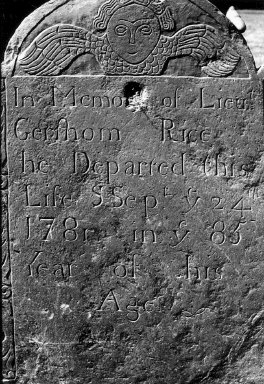 In Memory of Lieu.t
Gershom Rice
he Departed this
Life Sep.t ye 24th
1781 in ye 85
Year of his
Age